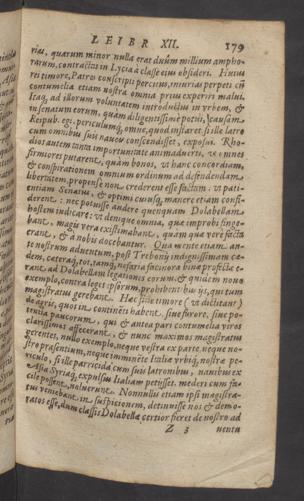 LEIBR XII. 179
rias, quarum minor nulla erat duûm millium ampho-
rarum, contractas in Lycia à classe eius obsideri. Huius
rei timore, Patres conscripti percussi, iniurias perpeti cũ
contumelia etiam nostra omnia prius experiri malui.
Itaq; ad illorum voluntatem introductus in vrbem, &
in senatum eorum, quàm diligentissimè potui, causam
Reipub. egi, periculumq; omne, quod instaret, si ille latro
cum omnibus suis naues conscendisset, exposui. Rho-
dios autem tanta importunitate animaduerti, vt omnes
firmiores putarent, quàm bonos, vt hanc concordiam,
& conspirationem omnium ordinum ad defendendam
libertatem, propense non crederent esse factam: vt pati-
entiam Senatus, & optimi cuiusq; manere etiam confi-
derent: nec potuisse audere quenquam Dolabellam
hostem iudicare: vt denique omnia, quæ improbi finge-
bant, magis vera existimabant, quàm quæ vere facta
erant, & à nobis docebantur. Qua mente etiam an-
te nostrum aduentum, post Trebonij indignissimam cæ-
dem, cæteraq; tot, tamq; nefaria facinora binæ profectæ e-
rant ad Dolabellam legationes eorum: & quidem nouo
exemplo, contra leges ipsorum, prohibentibus ijs, qui tum
magistratus gerebant. Hac siue timore (vt dictitant)
de agris, quos in continẽti habent, siue furore, siue po-
tentia paucorum, qui & antea pari contumelia viros
clarissimos affecerant, & nunc maximos magistratus
gerentes, nullo exemplo, neque vestra ex parte, neque no-
stro præsentium, neque imminẽte Italiæ vrbiq; nostræ pe-
riculo, si ille parricida cum suis latronibus, nauibus ex
Asia Syriaq; expulsus Italiam petisset, mederi cum fa-
cile possent, noluerunt. Nonnullis etiam ipsi magistra-
tus veniebant in suspicionem, detinuisse nos & demo-
ratos esse, dum classis Dolabellæ certior fieret de nostro ad
Z 3 uentu